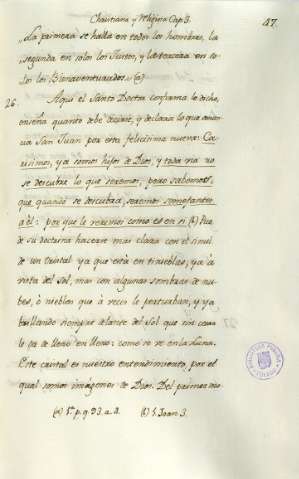 Christiana y Mistica Cap. 3. 47.
"La primera se halla en todos los hombres, la
segunda en solos los Justos, y la tercera en so-
los los Bienaventurados. (a)
26. Aqui el Santo Doctor confirma lo dicho,
enseña quanto debe decirse, y declara lo que anun-
cia San Juan por esta felicissima nueva: Ca-
risimos, ya somos hijos de Dios, y toda via no
se descubre lo que seremos, pero sabemos,
que quando se descubra, seremos semejantes
a èl: por que le veremos como es en si (b) Pue-
de su doctrina hacerse mas clara con el simil
de un Cristal ya que està en tinieblas, ya à
vista del Sol, mas con algunas sombras de nu-
bes, ò nieblas que à veces le perturban, y ya
brillando siempre delante del Sol que nos
lo ya de lleno en lleno: como se ve en la Luna.
Este cristal es nuestro entendimiento, por el
qual somos imágenes de Dios. Del primer mo-
(a) 1ª p. q. 93. a. 4. (b) 1. Joan 3.